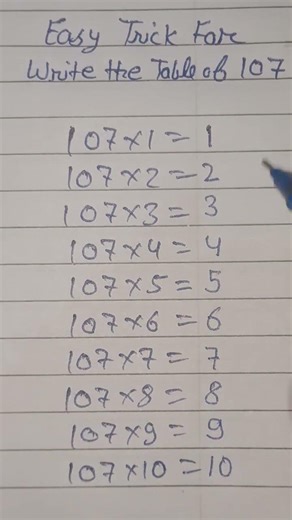 Easy Trick For
Write the Table of 107
107×1=1
107×2=2
107×3=3
107×4=4
107×5=5
107×6=6
107×7=7
107×8=8
107×9=9
107×10=10